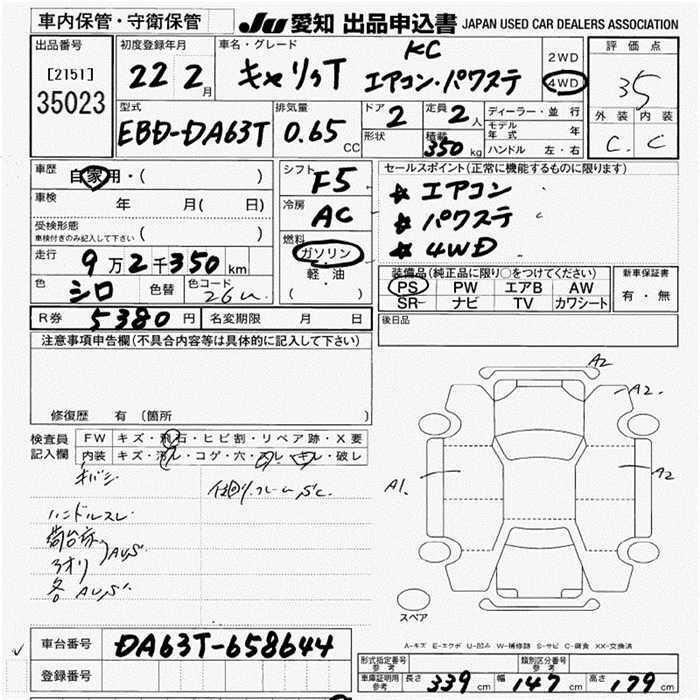 車内保管・守衛保管
JU 愛知 出品申込書 JAPAN USED CAR DEALERS ASSOCIATION
出品番号
[2151]
35023
初度登録年月
22 2月
車名・グレード
KC
キャリクT エアコン・パワステ
2WD
4WD
評価点
35
外装 内装
C C
型式
EBD-DA63T
排気量
0.65 CC
ドア 2
形状
定員 2人
積載 350 kg
ディーラー・並行
モデル年式 年
ハンドル 左・右
車歴 自家用・( )
車検 年 月( 日)
受検形態
車検付きのみ記入して下さい ( )
走行 9万2千350km
色 シロ 色替 色コード 26U
シフト F5
冷房 AC
燃料
ガソリン
軽・油
( )
セールスポイント(正常に機能するものに限ります)
★ エアコン
★ パワステ
★ 4WD
装備品(純正品に限り○をつけてください)
PS PW エアB AW
SR ナビ TV カワシート
新車保証書
有・無
R券 5380円 名変期限 月 日
後日品
注意事項申告欄(不具合内容等は具体的に記入して下さい)
修復歴 有(箇所 )
検査員記入欄
FW キズ・飛石・ヒビ割・リペア跡・X要
内装 キズ・汚レ・コゲ・穴・スレ・キレ・破レ
キバミ
仕切り、フレームSC
ハンドルスレ
荷台床
アオリ
AUS
各AUS
A2
A2
A1
A2
スペア
A-キズ E-エクボ U-凹み W-補修跡 S-サビ C-腐食 XX-交換済
車台番号 DA63T-658644
登録番号
形式指定番号 参考
類別区分番号 参考
車庫証明用 参考 長さ 339cm 幅 147cm 高さ 179cm